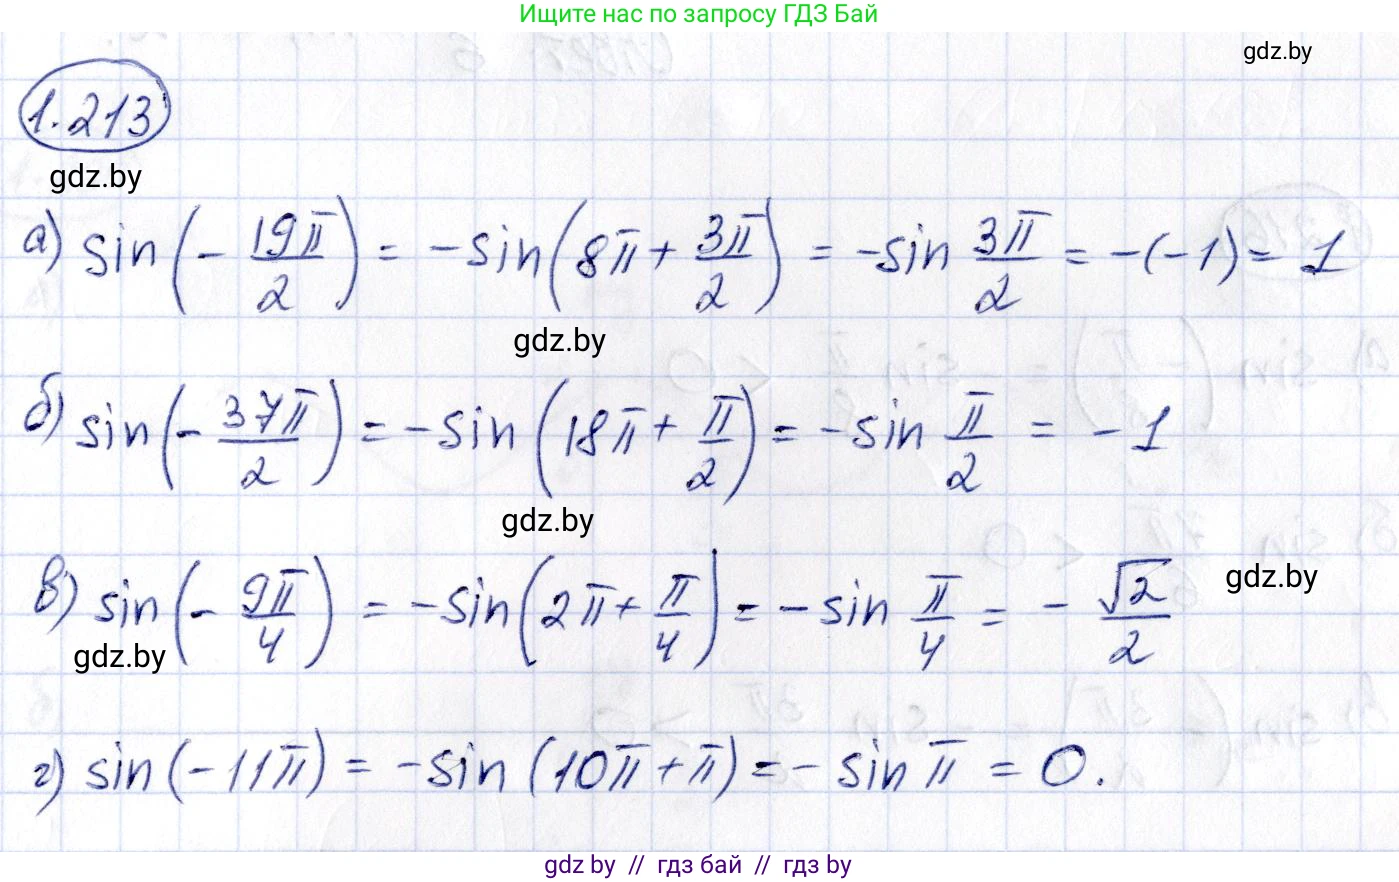 Ищите нас по запросу ГДЗ Бай
gdz.by
1.213
gdz.by
а) sin(-19π/2) = -sin(8π+3π/2) = -sin 3π/2 = -(-1) = 1
gdz.by
б) sin(-37π/2) = -sin(18π+π/2) = -sin π/2 = -1
gdz.by
в) sin(-9π/4) = -sin(2π+π/4) = -sin π/4 = -√2/2
gdz.by
gdz.by
г) sin(-11π) = -sin(10π+π) = -sin π = 0.
gdz.by // гдз бай // гдз by